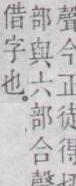 聲今正徒得
部與六部合聲
借字也